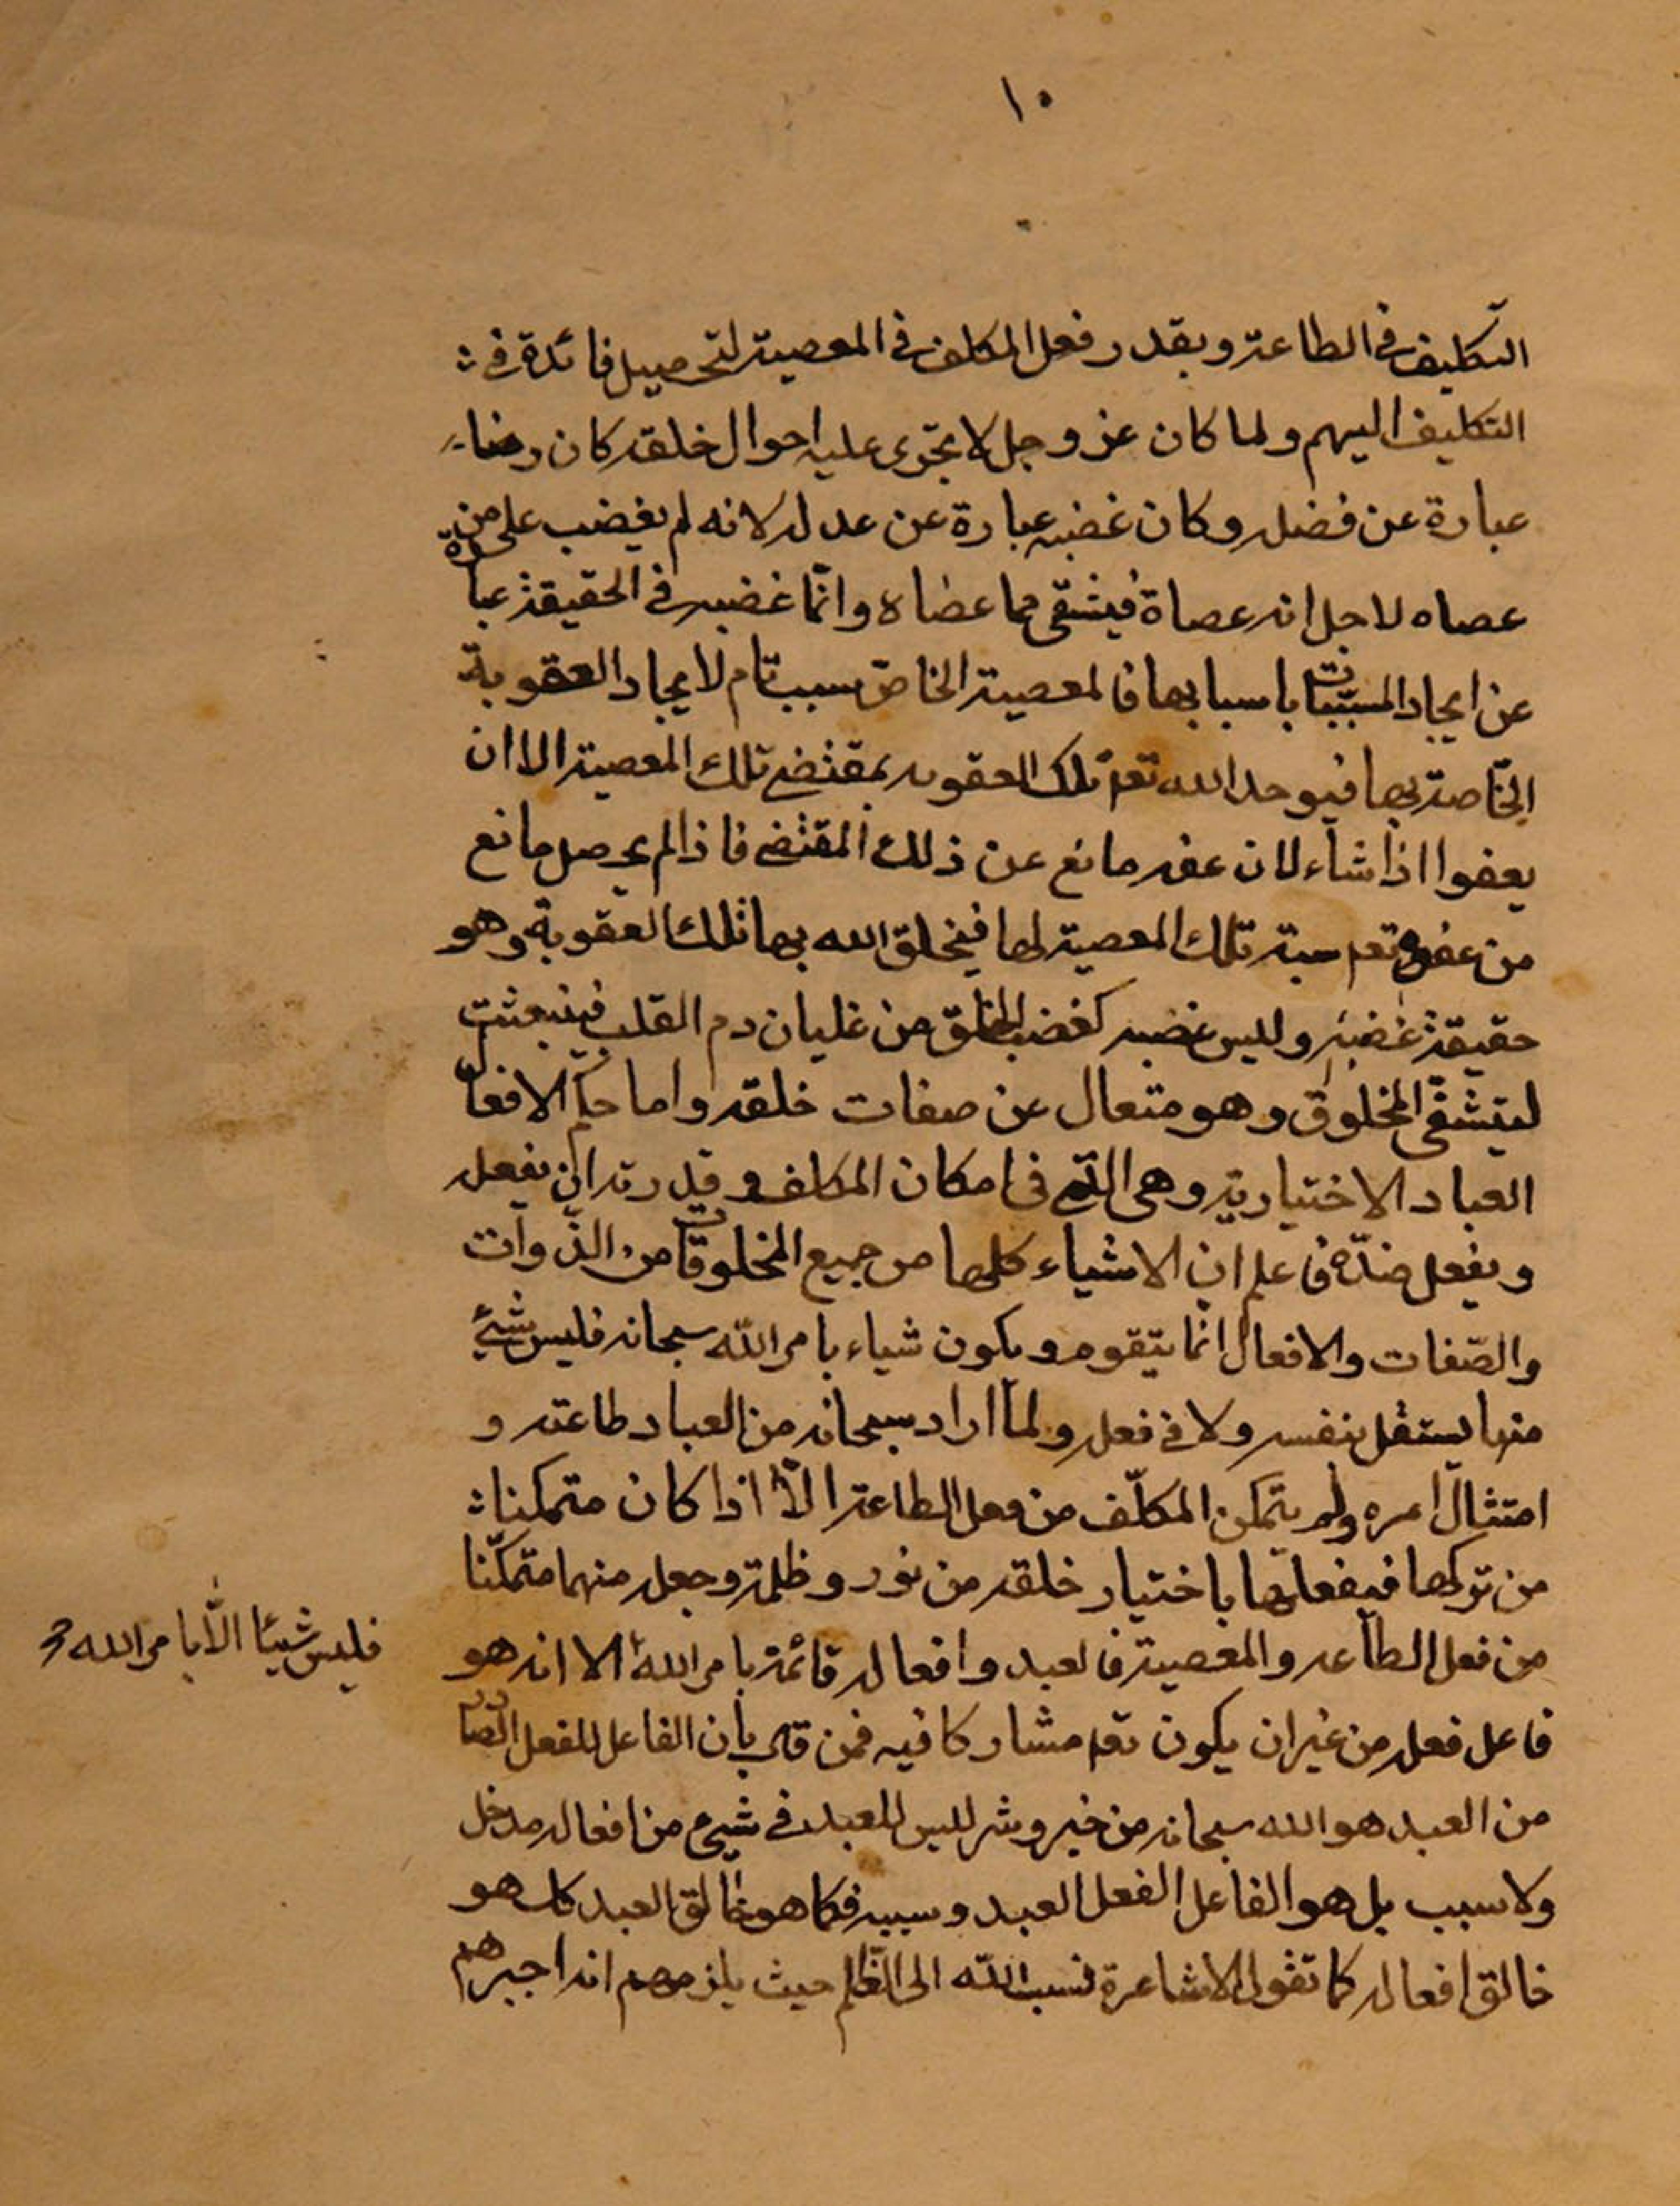 ١٠
التكليف فى الطاعة وبقدر فعل المكلف فى المعصية لتحصيل فائدة فى
التكليف اليهم ولما كان عز وجل لا تجرى عليه احوال خلقه كان رضاه
عبارة عن فضله وكان غضبه عبارة عن عدله لانه لم يغضب على من
عصاه لاجل انه عصاه فيتشفى مما عصاه وانّما غضبه فى الحقيقة عبارة
عن ايجاد المسببات باسبابها فالمعصية الخاصّة سبب تام لايجاد العقوبة
الخاصة بها فيوجد الله تعم تلك العقوبه بمقتضى تلك المعصية الا ان
يعفوا اذا شاء لان عفوه مانع عن ذلك المقتضى فاذا لم يحصل مانع
من عفوه تعم تلك المعصية لها فيخلق الله بها تلك العقوبة وهو
حقيقة غضبه وليس غضبه كغضب الخلق من غليان دم القلب فينبعث
ليتشفى المخلوق وهو متعال عن صفات خلقه واما حكم الافعال
العباد الاختيارية وهى الّتى فى امكان المكلف وقدرته ان يفعله
ويفعل ضدّه فاعلم ان الاشياء كلها من جميع المخلوقات من الذّوات
والصّفات والافعال انّما يتقوم ويكون شياء بامر اللّه سبحانه فليس شئ
منها يستقل بنفسه ولا فى فعله ولمّا اراد سبحانه من العباد طاعته و
امتثال امره ولم يتمكن المكلّف من فعل الطاعة الّا اذا كان متمكنا
من تركها فيفعلها باختيار خلقه من نور وظلمة وجعله منهما متمكّنا
من فعل الطاعه والمعصية فالعبد وافعاله قائمة بامر الله الا انه هو
فليس شيئا الّا بامر الله
فاعل فعله من غير ان يكون تعم مشاركا فيه فمن قال بان الفاعل للفعل الصادر
من العبد هو الله سبحانه من خير وشر ليس للعبد فى شيء من افعاله مدخل
ولا سبب بل هو الفاعل الفعل العبد وسببه فكما هو خالق العبد كك هو
خالق افعاله كما تقول الاشاعرة نسب اللّه الى الظّلم حيث يلزمهم انه اجبرهم